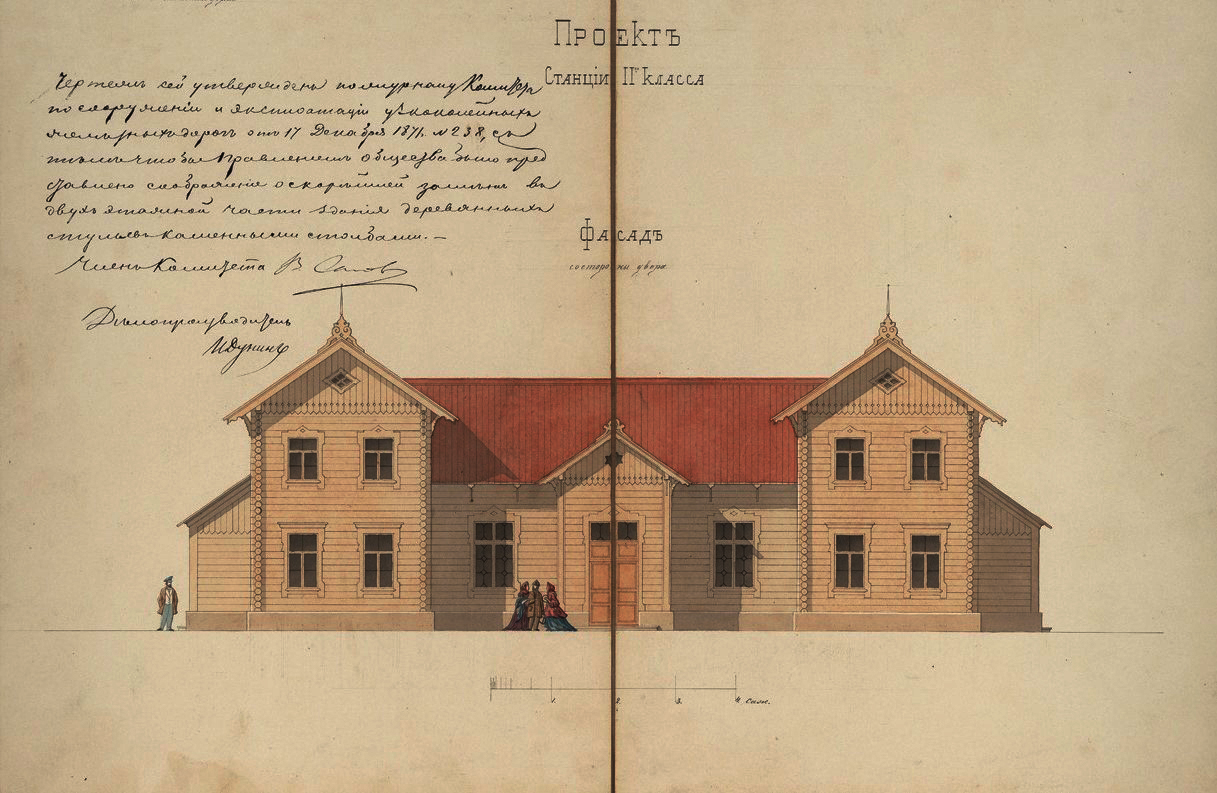 Проектъ
Станціи IIго класса
Чертежъ сей утвержденъ по журналу Комитета
по сооруженію и эксплоатаціи узкоколейныхъ
желѣзныхъ дорогъ отъ 17 Декабря 1871. № 238, съ
тѣмъ чтобы Правленіемъ общества было пред
ставлено соображеніе о скорѣйшей замѣнѣ въ
двухъ этажной части зданія деревянныхъ
стульевъ каменными столбами. —
Членъ Комитета В
Дѣлопроизводитель
Фасадъ
со стороны двора
1. 2. 3. 4 саж.